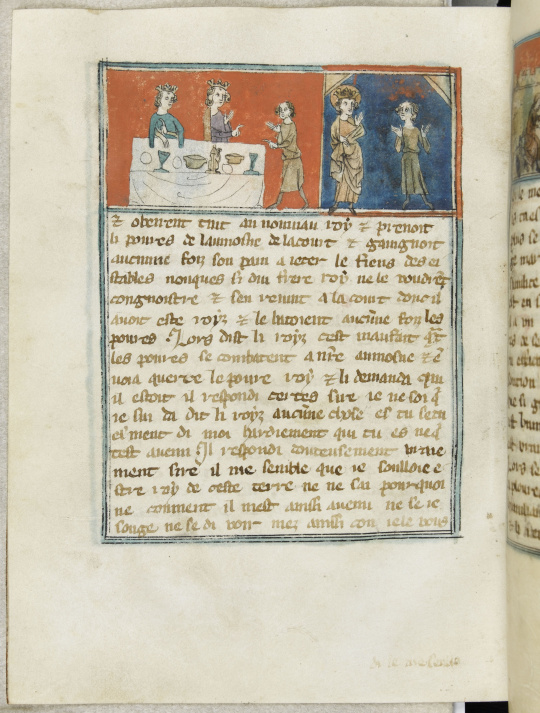 ⁊ obeirent tuit au nouuiau roy ⁊ prenoit
li poures de laumosne de la court ⁊ gaaignoit
aucune foiz son pain a ieter le fiens des e
stables nonques si dui frere roy ne le voudrẽt
congnoistre ⁊ sen reuint a la court donc il
auoit este roys ⁊ le batoient aucune foiz les
poures Lors dist li roys cest mausait
les poures se combatent a nr̃e aumosne ⁊ ẽ
uoia querre le poure roy ⁊ li demanda qui
il estoit il respondi certes sire ie ne sai q̃
ie sui di dit li roys aucune chose es tu se tu
mẽt de moi hardiement qui tu es ne q̃
test auenu Il respondi douteusement vraie
ment sire il me semble que ie soulloie e
stre roy de ceste terre ne ne sai pourquoi
ne comment il mest ainssi auenu ne se ie
songe ne se di voir mez ainssi con ie le vous